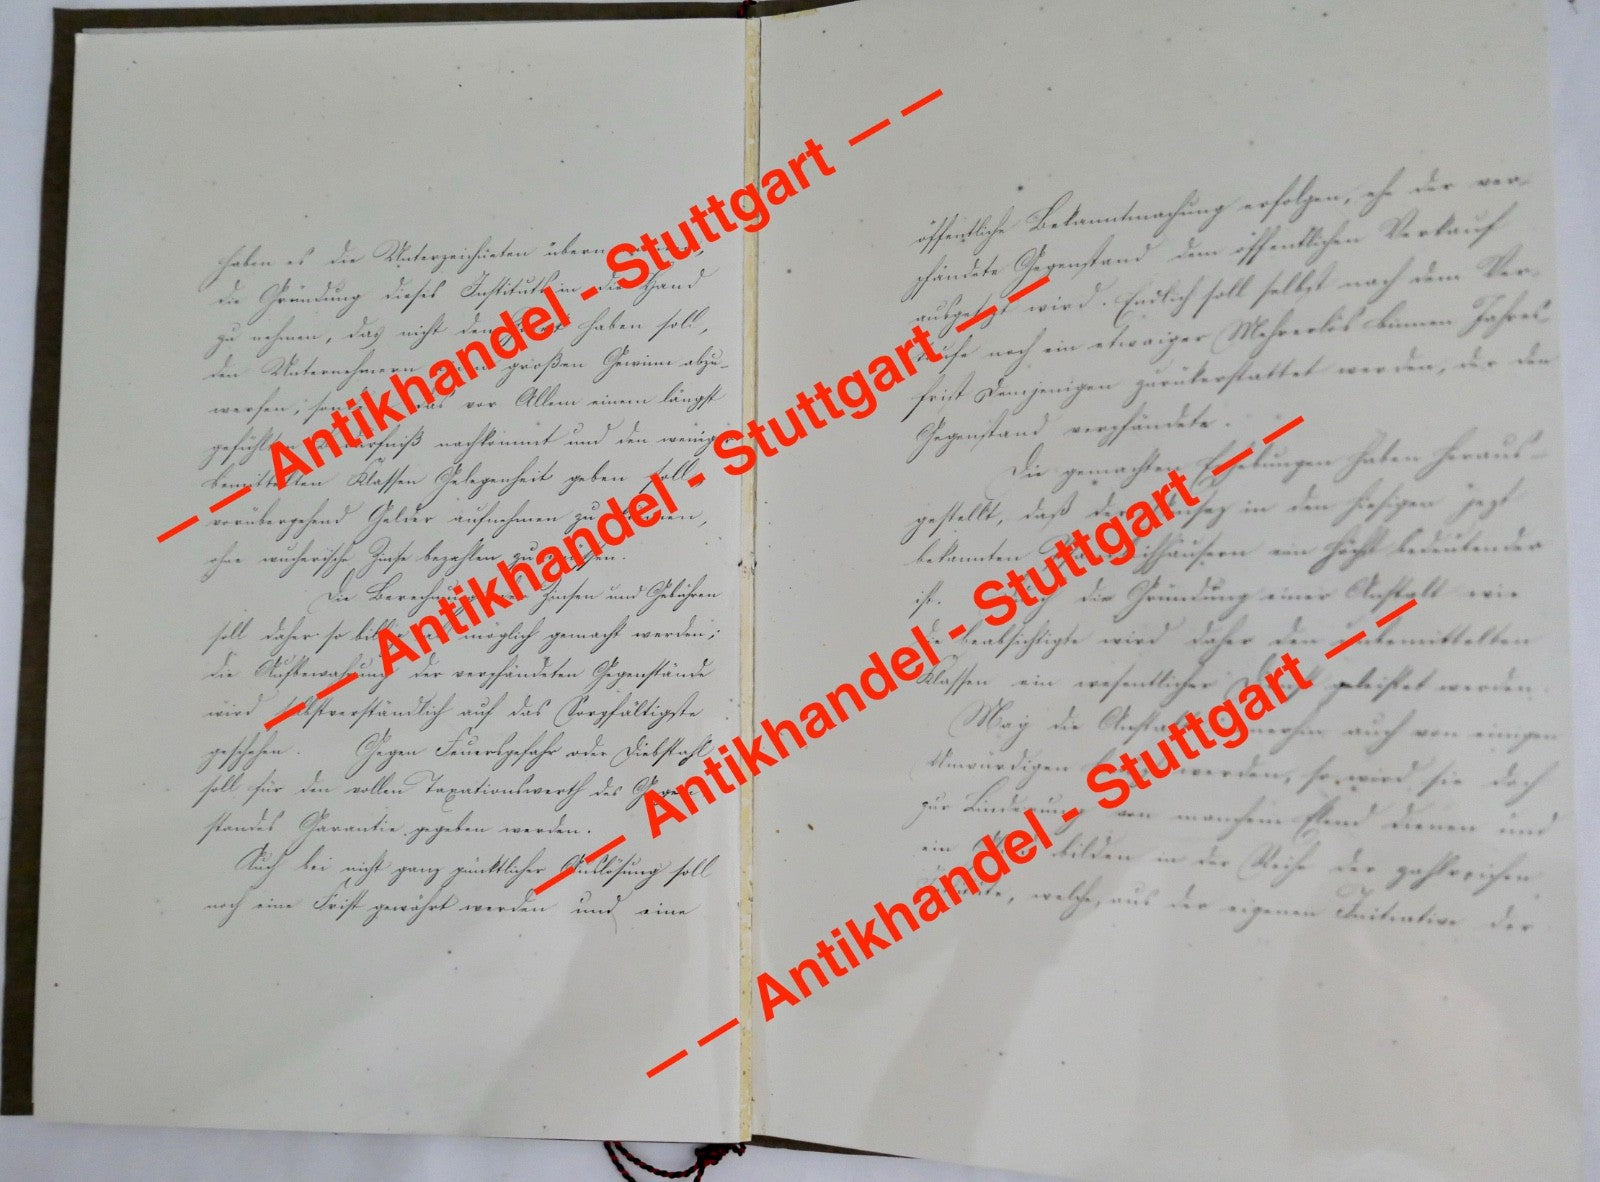 haben es die Unterzeichneten übernommen,
die Gründung dieses Instituts in die Hand
zu nehmen, das nicht den Zweck haben soll,
den Unternehmern einen großen Gewinn abzu-
werfen, sondern das vor Allem einem längst
gefühlten Bedürfniß nachkommt und den weniger
bemittelten Klassen Gelegenheit geben soll
vorübergehend Gelder aufnehmen zu können,
ohne wucherische Zinse bezahlen zu müssen.
Die Berechnung der Zinsen und Gebühren
soll daher so billig als möglich gemacht werden;
die Aufbewahrung der verpfändeten Gegenstände
wird selbstverständlich auf das Sorgfältigste
geschehen. Gegen Feuersgefahr oder Diebstahl
soll für den vollen Taxationswerth des Gegen-
standes Garantie gegeben werden.
Auch bei nicht ganz pünktlicher Auslösung soll
noch eine Frist gewährt werden und eine
öffentliche Bekanntmachung erfolgen, ehe der ver-
pfändete Gegenstand dem öffentlichen Verkauf
ausgesetzt wird. Endlich soll selbst nach dem Ver-
kaufe noch ein etwaiger Mehrerlös binnen Jahres-
frist Demjenigen zurückerstattet werden, der den
Gegenstand verpfändete.
Die gemachten Erhebungen haben heraus-
gestellt, daß der Umsatz in den hiesigen jetzt
bekannten Pfandleihhäusern ein höchst bedeutender
ist. Durch die Gründung einer Anstalt wie
die beabsichtigte wird daher den unbemittelten
Klassen ein wesentlicher Dienst geleistet werden.
Mag die Anstalt immerhin auch von einigen
Unwürdigen benützt werden, so wird sie doch
zur Linderung von manchem Elend dienen und
ein Glied bilden in der Reihe der zahlreichen
Institute, welche, aus der eigenen Initiative der
— — Antikhandel - Stuttgart — —
— — Antikhandel - Stuttgart — —
— — Antikhandel - Stuttgart — —
— — Antikhandel - Stuttgart — —